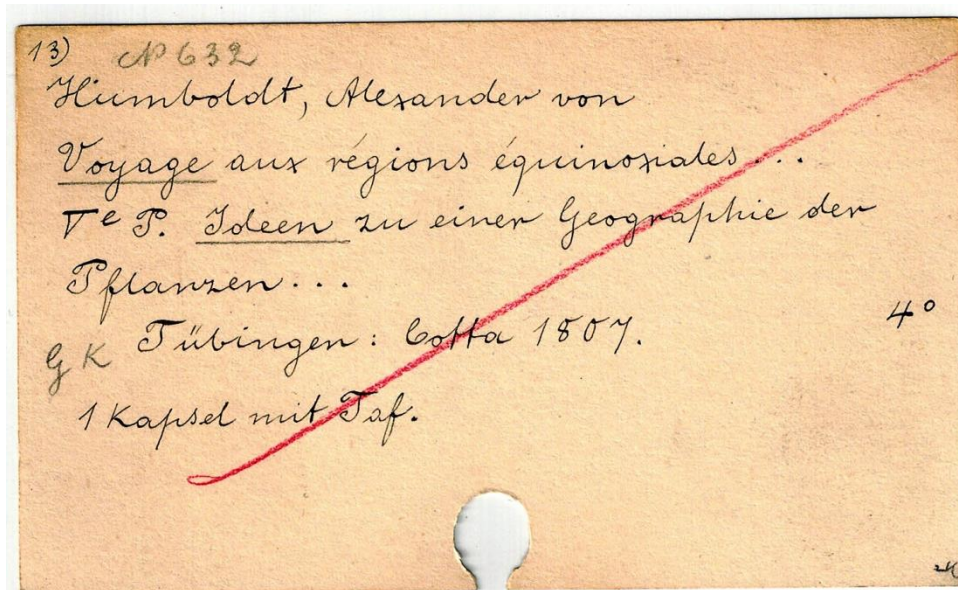 13) № 632
Humboldt, Alexander von
Voyage aux régions équinoxiales...
Ve P. Ideen zu einer Geographie der
Pflanzen...
Tübingen: Cotta 1807. 4°
GK
1 Kapsel mit Taf.